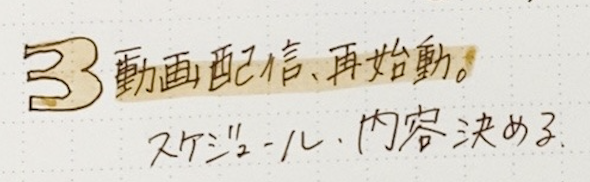 3 動画配信、再始動。
スケジュール・内容決める.